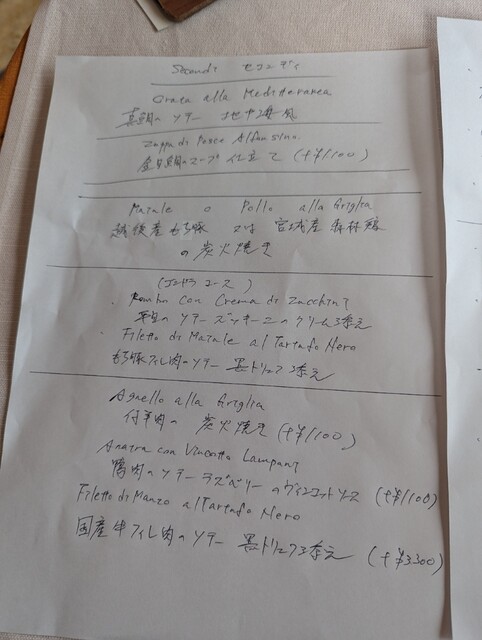 Secondi セコンディ
Orata alla Mediterranea
真鯛のソテー 地中海風
Zuppa di Pesce Alfonsino
金目鯛のスープ仕立て (+¥1100)
Maiale o Pollo alla Griglia
越後産もち豚 又は 宮城産 森林鶏
の炭火焼き
コース)
Rombo con Crema di Zucchini
平目のソテーズッキーニのクリーム添え
Filetto di Maiale al Tartufo Nero
もち豚フィレ肉のソテー 黒トリュフ添え
Agnello alla Griglia
仔羊肉の 炭火焼き (+¥1100)
Anatra con Vincotto Lamponi
鴨肉のソテーラズベリーのヴィンコットソース (+¥1100)
Filetto di Manzo al Tartufo Nero
国産牛フィレ肉のソテー 黒トリュフ添え (+¥3300)